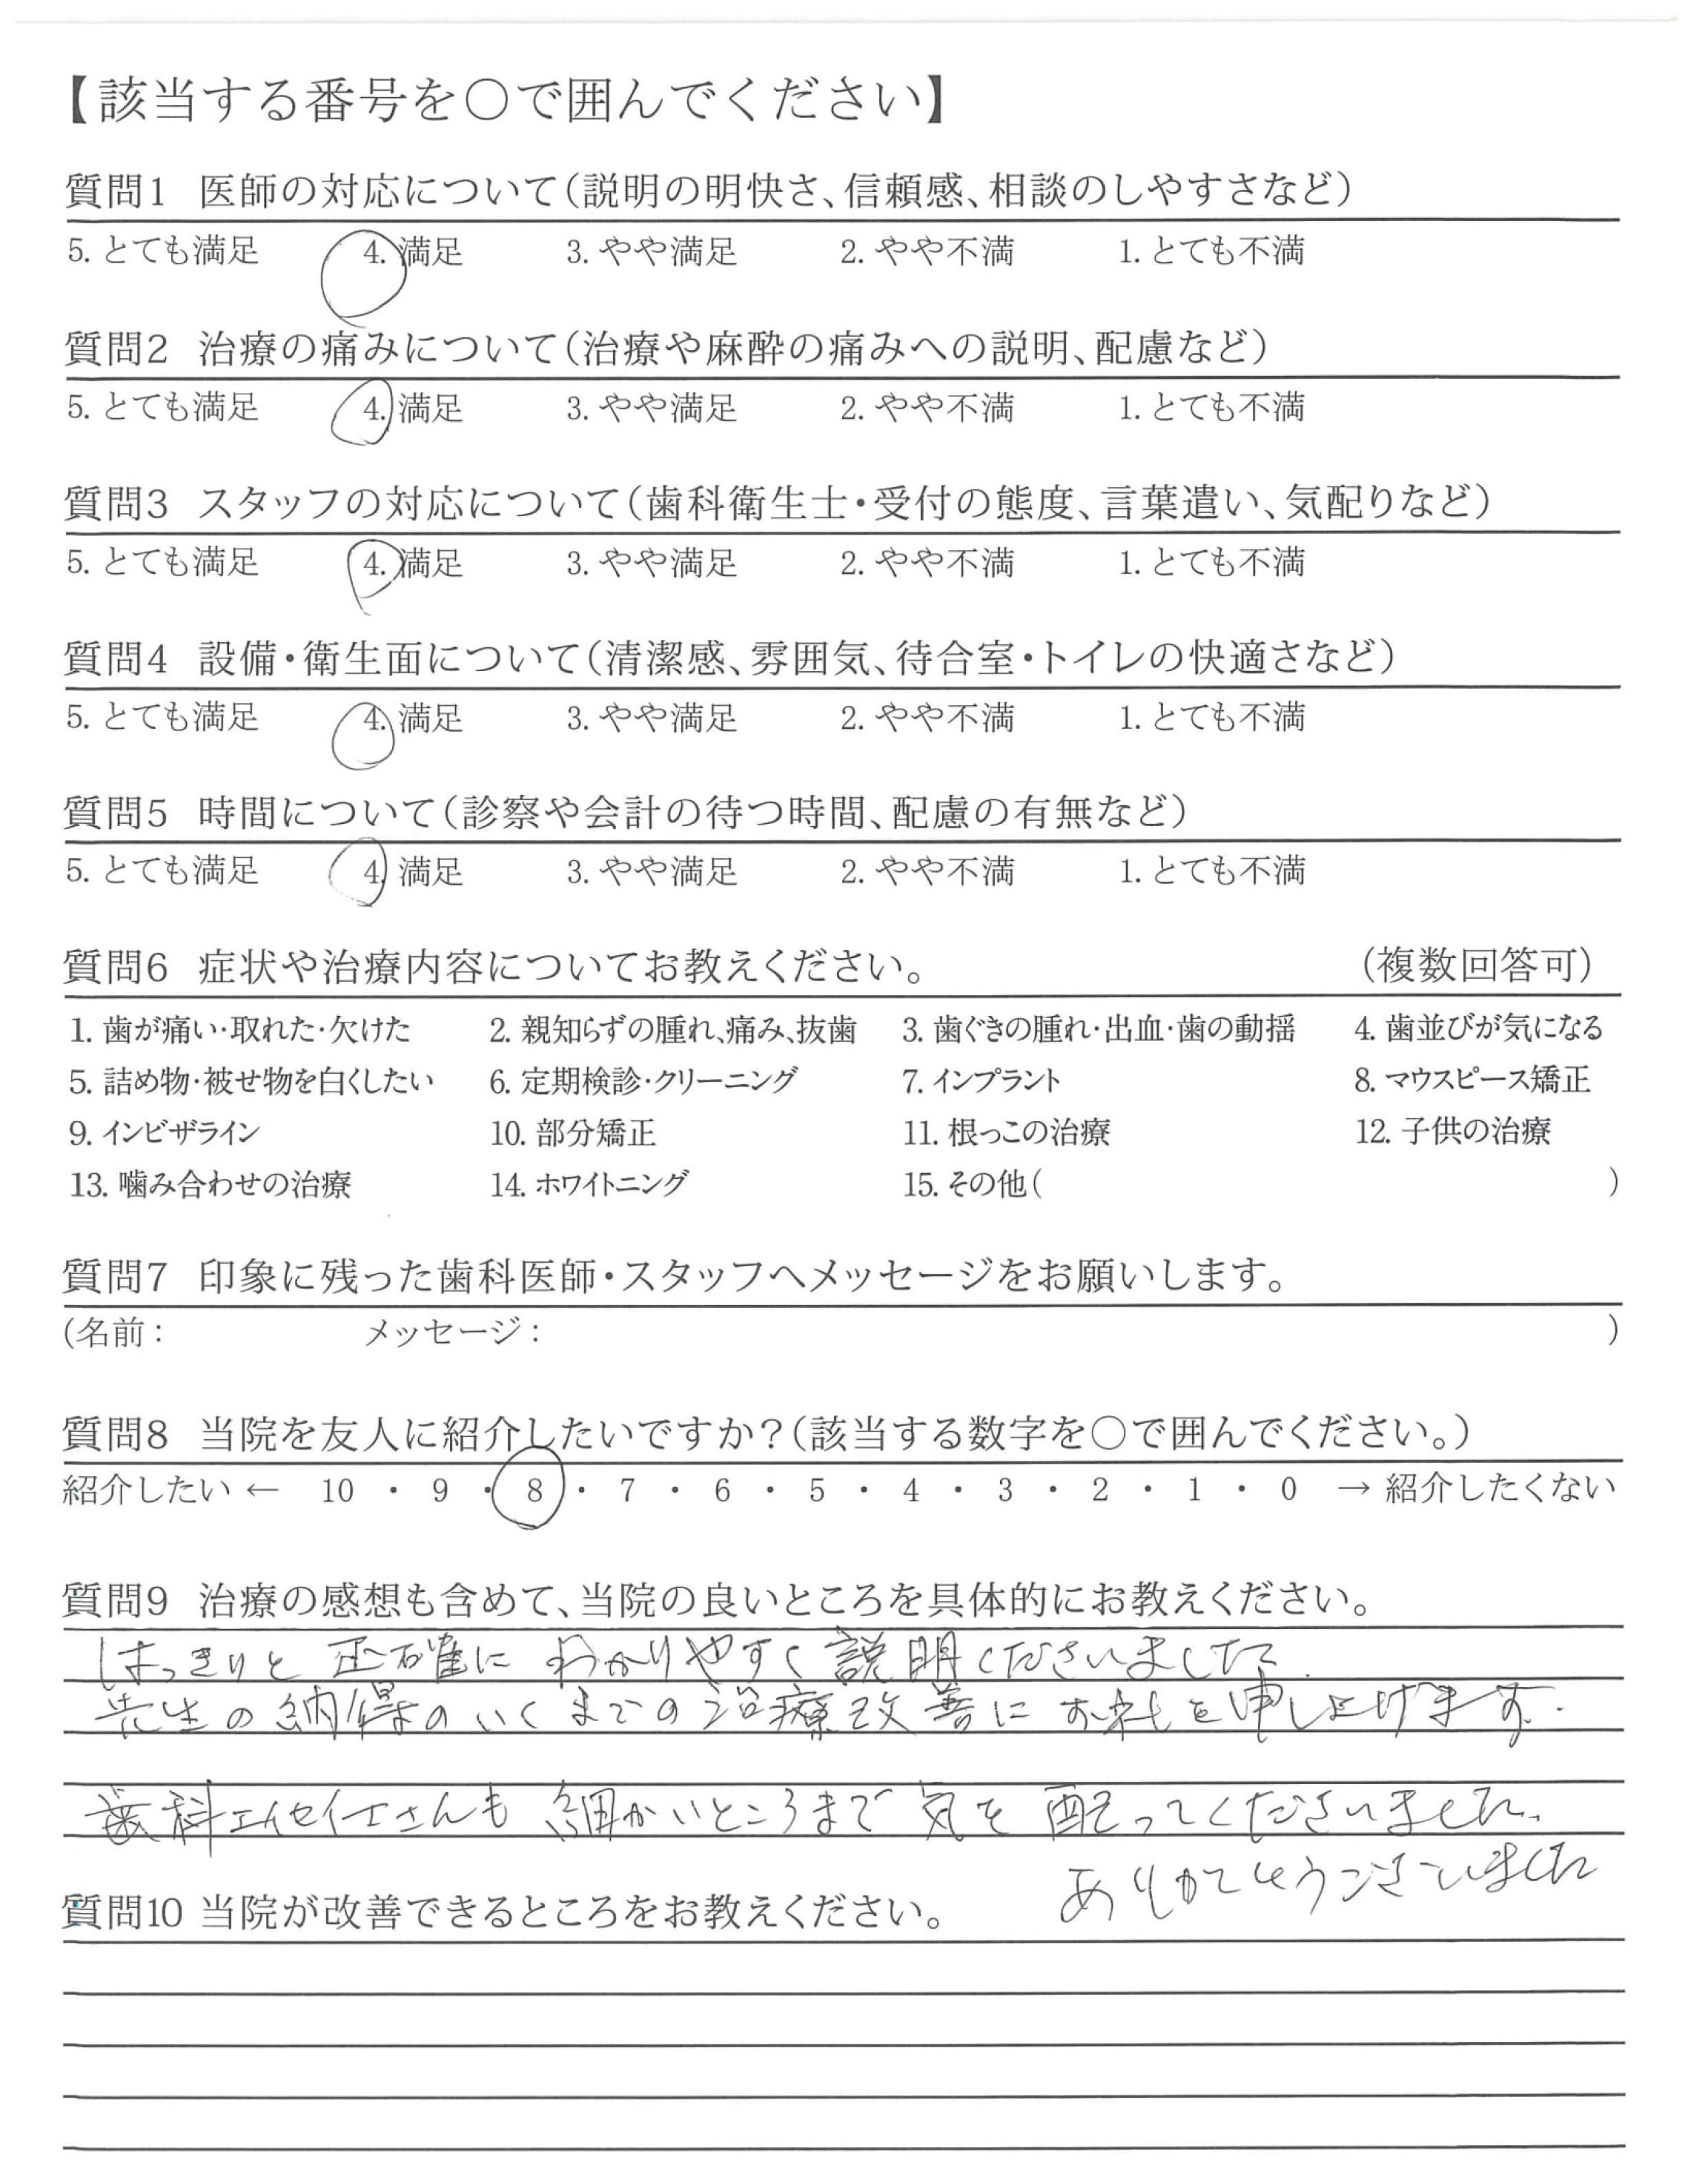 【該当する番号を○で囲んでください】
質問1 医師の対応について(説明の明快さ、信頼感、相談のしやすさなど)
5. とても満足 4. 満足 3. やや満足 2. やや不満 1. とても不満
質問2 治療の痛みについて(治療や麻酔の痛みへの説明、配慮など)
5. とても満足 4. 満足 3. やや満足 2. やや不満 1. とても不満
質問3 スタッフの対応について(歯科衛生士・受付の態度、言葉遣い、気配りなど)
5. とても満足 4. 満足 3. やや満足 2. やや不満 1. とても不満
質問4 設備・衛生面について(清潔感、雰囲気、待合室・トイレの快適さなど)
5. とても満足 4. 満足 3. やや満足 2. やや不満 1. とても不満
質問5 時間について(診察や会計の待つ時間、配慮の有無など)
5. とても満足 4. 満足 3. やや満足 2. やや不満 1. とても不満
質問6 症状や治療内容についてお教えください。 (複数回答可)
1. 歯が痛い・取れた・欠けた 2. 親知らずの腫れ、痛み、抜歯 3. 歯ぐきの腫れ・出血・歯の動揺 4. 歯並びが気になる
5. 詰め物・被せ物を白くしたい 6. 定期検診・クリーニング 7. インプラント 8. マウスピース矯正
9. インビザライン 10. 部分矯正 11. 根っこの治療 12. 子供の治療
13. 噛み合わせの治療 14. ホワイトニング 15. その他( )
質問7 印象に残った歯科医師・スタッフへメッセージをお願いします。
(名前: メッセージ: )
質問8 当院を友人に紹介したいですか?(該当する数字を○で囲んでください。)
紹介したい ← 10 ・ 9 ・ 8 ・ 7 ・ 6 ・ 5 ・ 4 ・ 3 ・ 2 ・ 1 ・ 0 → 紹介したくない
質問9 治療の感想も含めて、当院の良いところを具体的にお教えください。
はっきりと 正確に わかりやすく 説明くださいました.
先生の納得のいくまでの治療改善に お礼を申し上げます.
歯科エイセイ士さんも 細かいところまで 気を 配ってくださいました.
ありがとうございました
質問10 当院が改善できるところをお教えください。